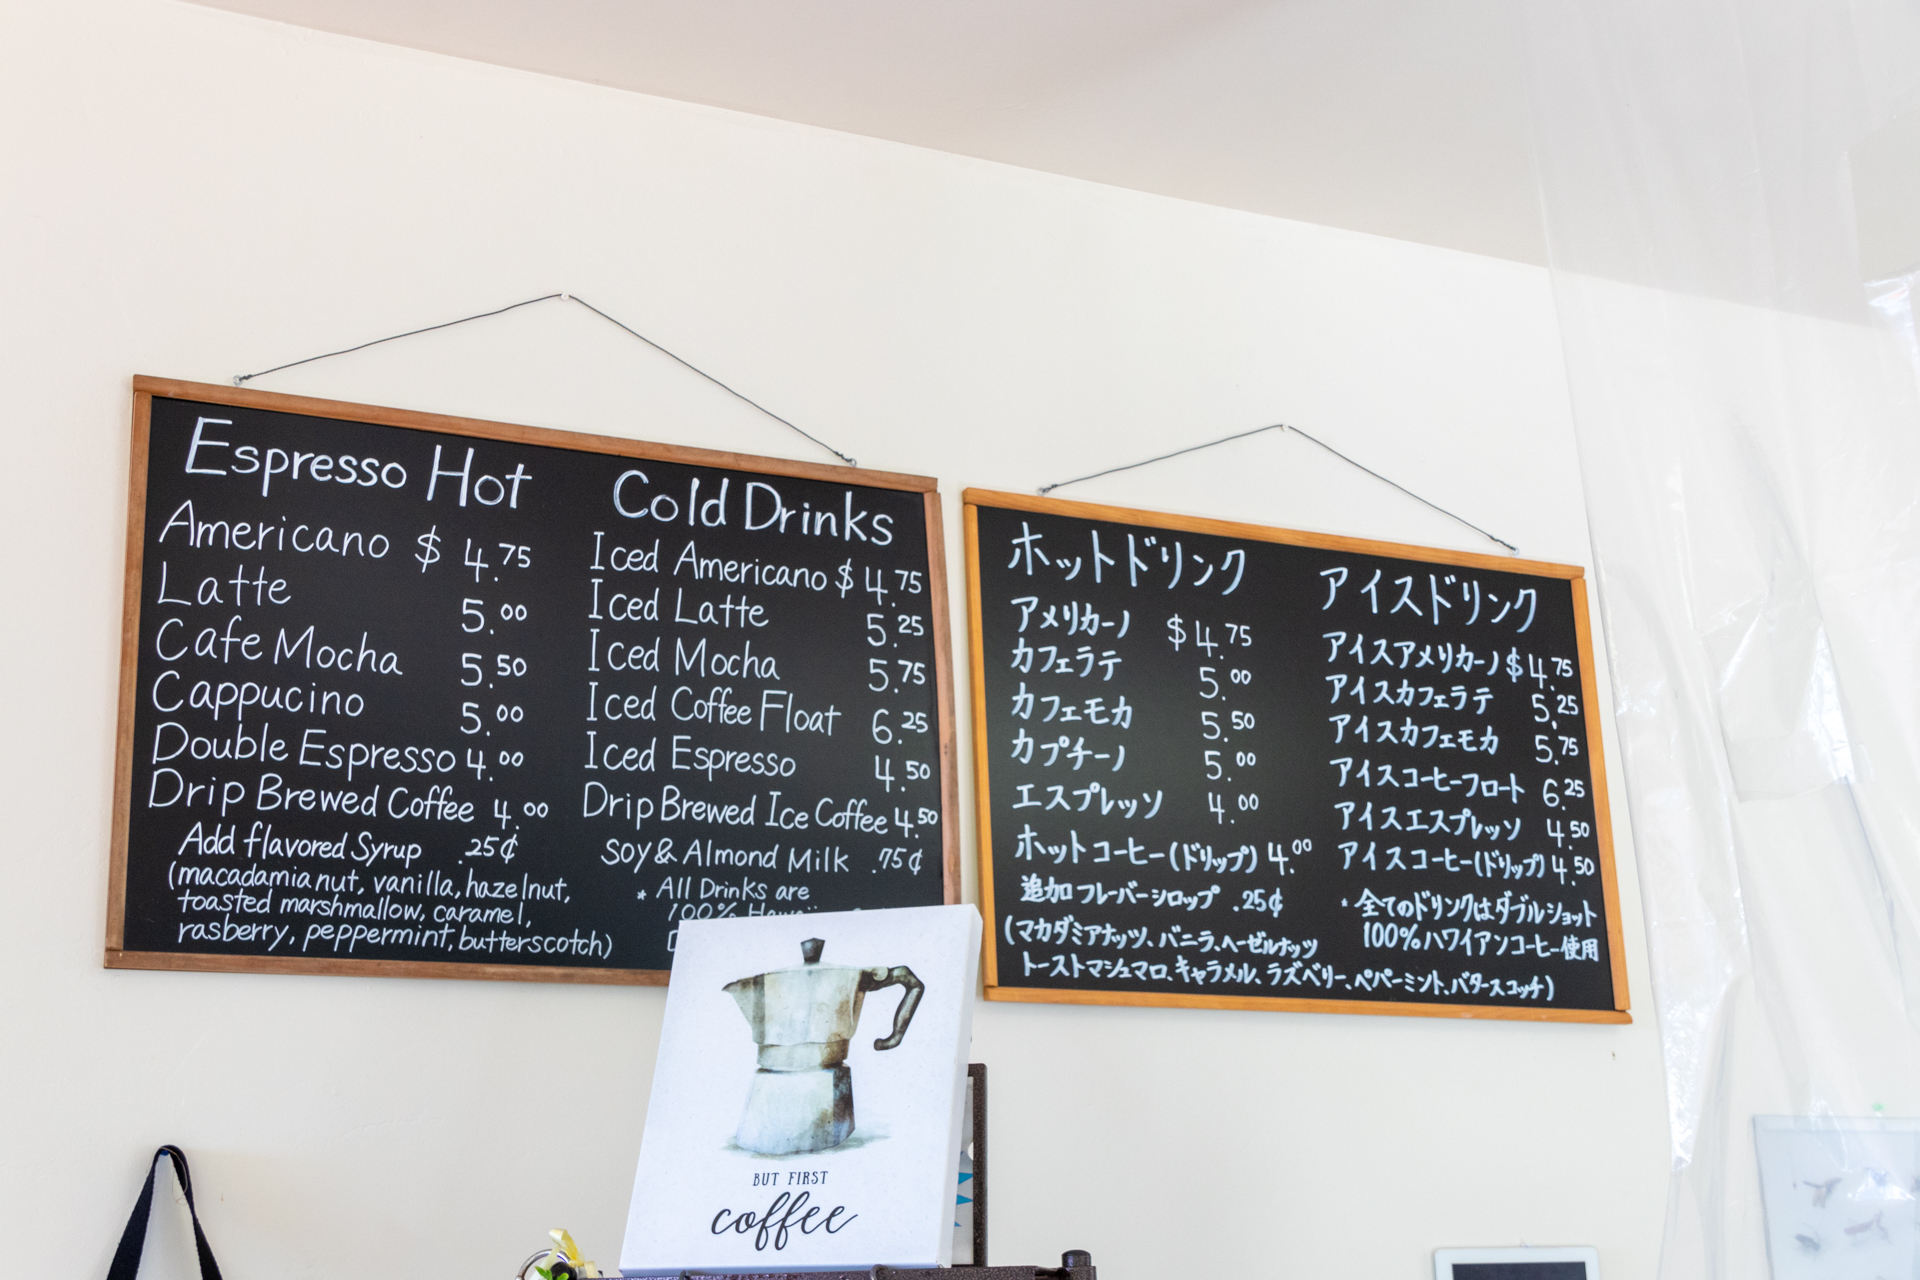 Espresso Hot
Americano $ 4.75
Latte 5.00
Cafe Mocha 5.50
Cappucino 5.00
Double Espresso 4.00
Drip Brewed Coffee 4.00
Add flavored Syrup .25¢
(macadamia nut, vanilla, hazelnut,
toasted marshmallow, caramel,
rasberry, peppermint, butterscotch)
Cold Drinks
Iced Americano $ 4.75
Iced Latte 5.25
Iced Mocha 5.75
Iced Coffee Float 6.25
Iced Espresso 4.50
Drip Brewed Ice Coffee 4.50
Soy & Almond Milk .75¢
* All Drinks are
100%
ホットドリンク
アメリカーノ $ 4.75
カフェラテ 5.00
カフェモカ 5.50
カプチーノ 5.00
エスプレッソ 4.00
ホットコーヒー(ドリップ) 4.00
追加フレーバーシロップ .25¢
(マカダミアナッツ、バニラ、ヘーゼルナッツ
トーストマシュマロ、キャラメル、ラズベリー、ペパーミント、バタースコッチ)
アイスドリンク
アイスアメリカーノ $ 4.75
アイスカフェラテ 5.25
アイスカフェモカ 5.75
アイスコーヒーフロート 6.25
アイスエスプレッソ 4.50
アイスコーヒー(ドリップ) 4.50
* 全てのドリンクはダブルショット
100%ハワイアンコーヒー使用
BUT FIRST
coffee